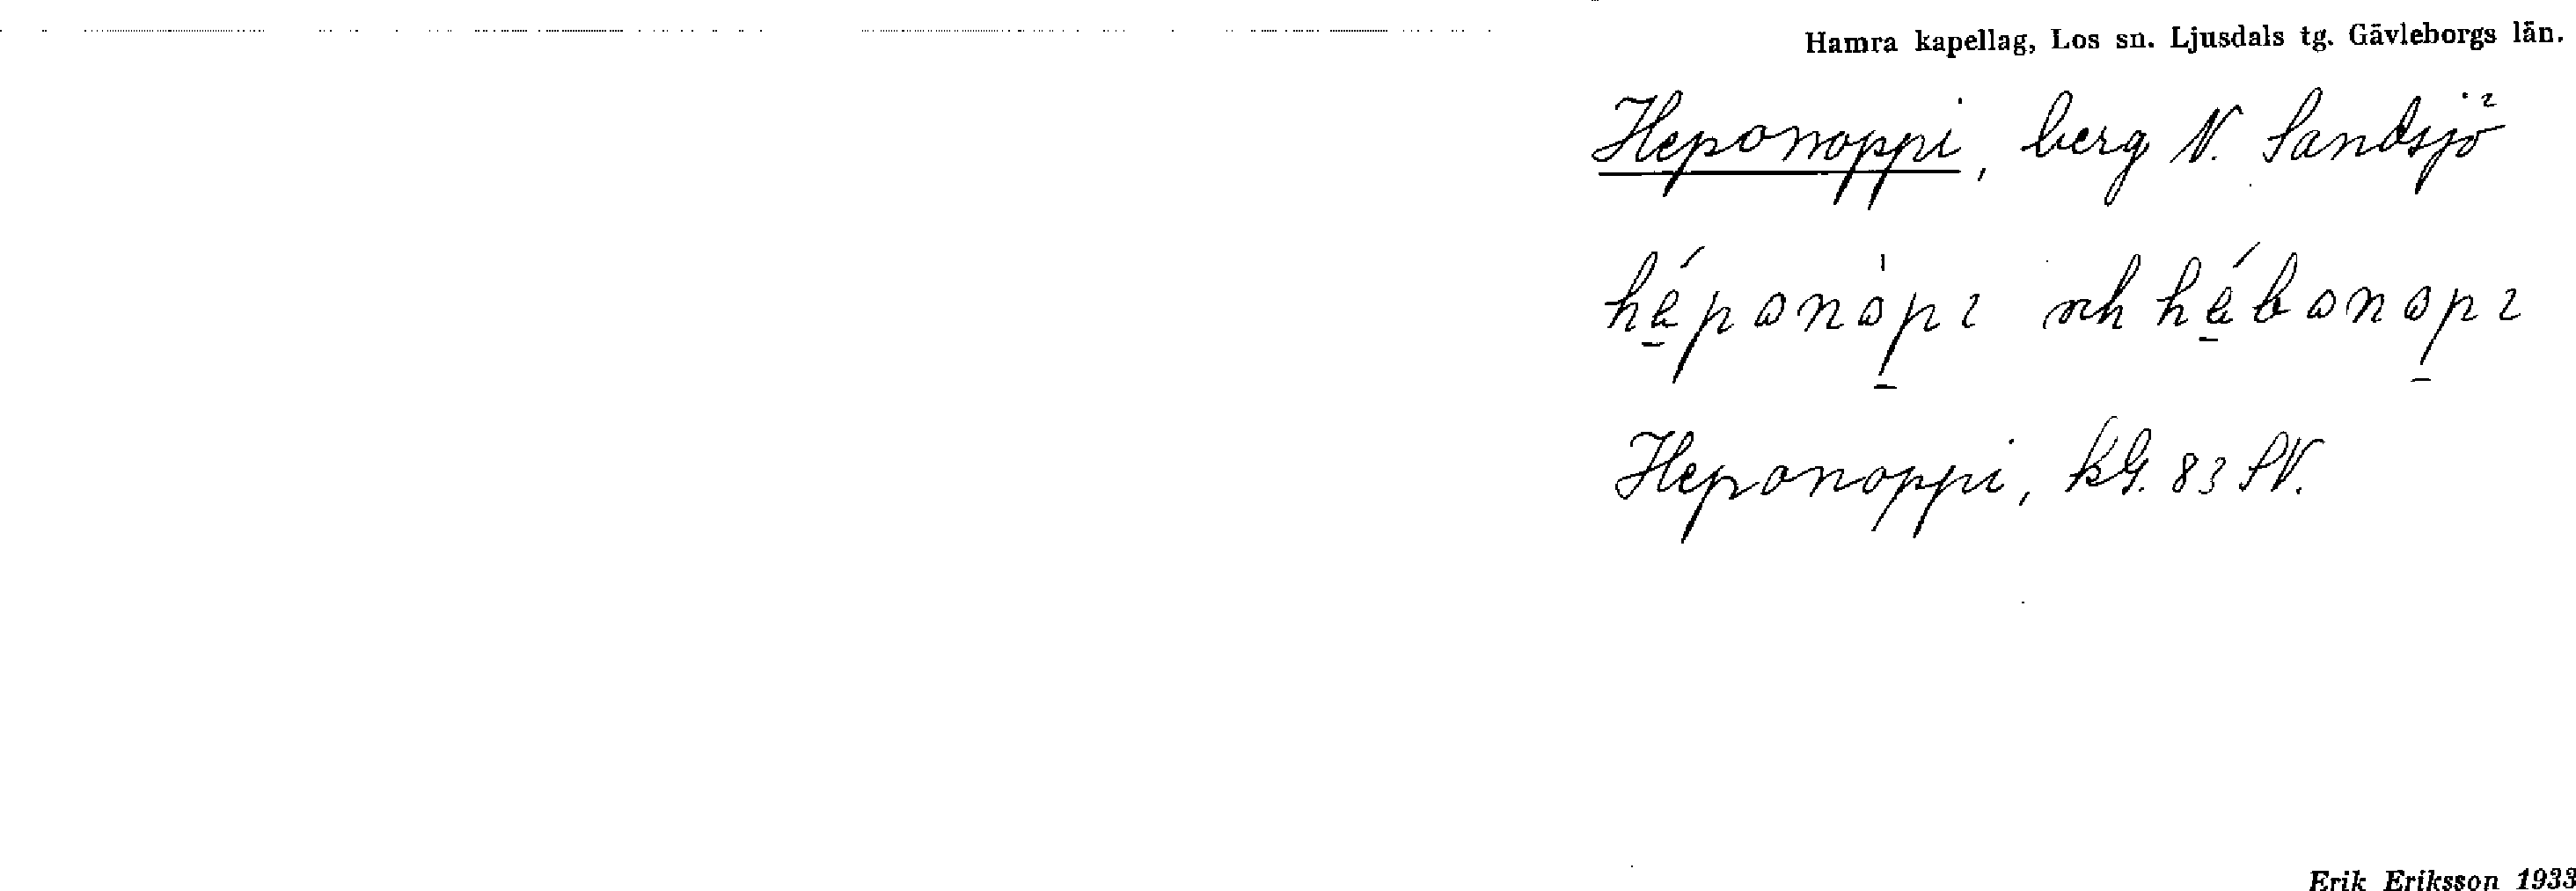 Hamra kapellag, Los sn. Ljusdals tg. Gävleborgs län.
Heponoppi, berg N. Sandsjö
och
Heponoppi, kG. 83 SV.
Erik Eriksson 1933